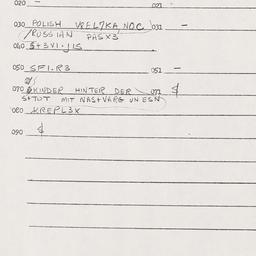 020 - 021
030 POLISH VREL7KA NOC 031 -
/RUSSIAN PASX3
040 S+3V1.J1S
050 SF1.R3 051 -
070 KINDER HINTER DER 071
S+TUT MIT NAS+VARG UN ESN
080 KREPL3X
090